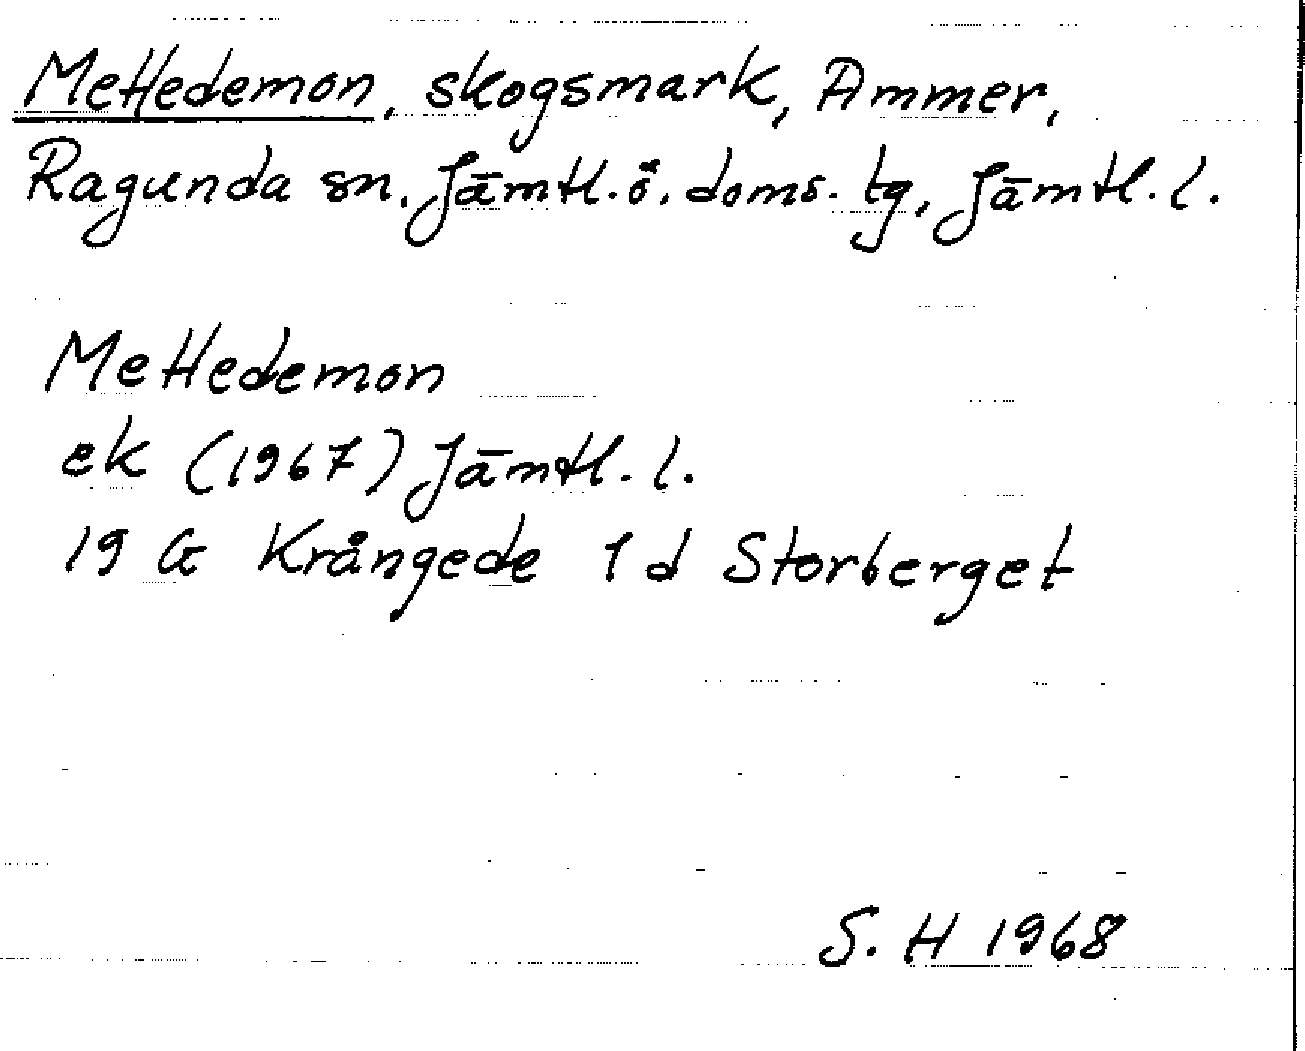 Mettedemon, skogsmark, Ammer,
Ragunda sn. Jämtl. ö. doms. tg, Jämtl. l.
Mettedemon
ek (1967) Jämtl. l.
19 G Krångede 1 d Storberget
S. H 1968